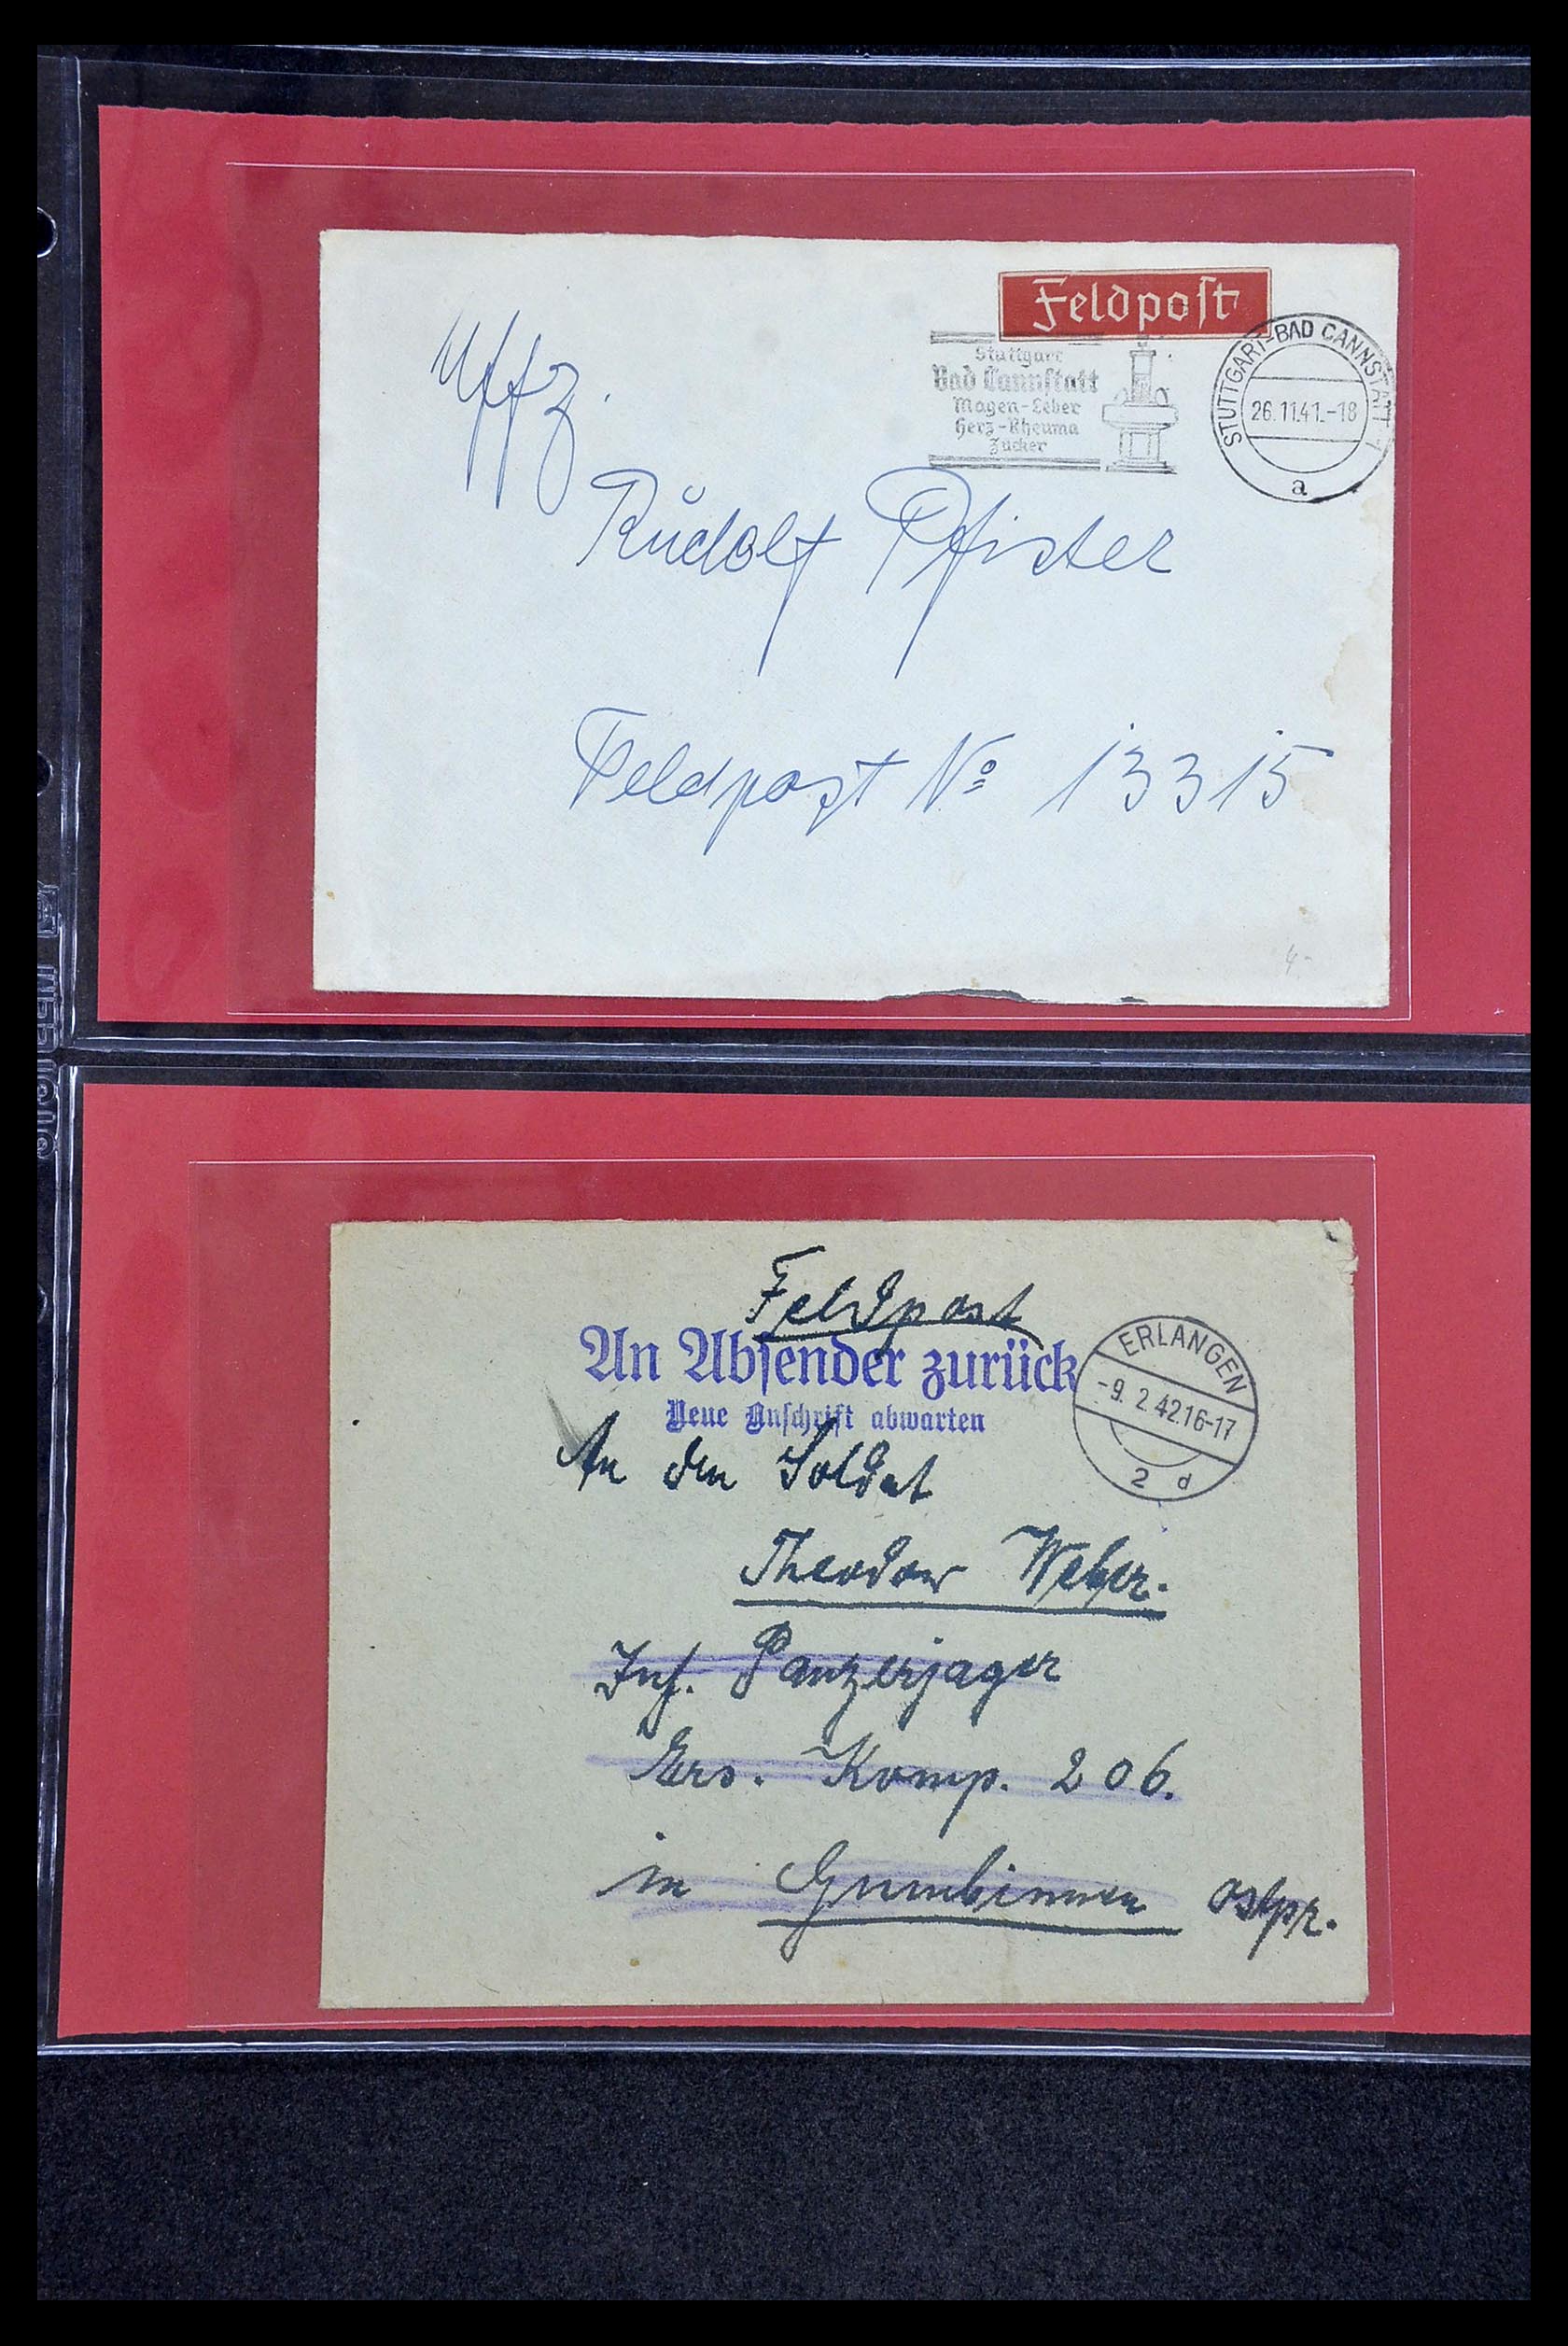 Feldpost
Stuttgart
Bad Cannstatt
Magen-Leber
Herz-Rheuma
Zucker
STUTTGART-BAD CANNSTATT 1
26.11.41.-18
a
Uffz.
Rudolf Pfister
Feldpost No 13315
4.-
Feldpost
An Absender zurück
Neue Anschrift abwarten
ERLANGEN
-9. 2.42.16-17
2 d
An den Soldat
Theodor Weber.
Inf. Panzerjager
Ers. Komp. 206.
in Gumbinnen Ostpr.